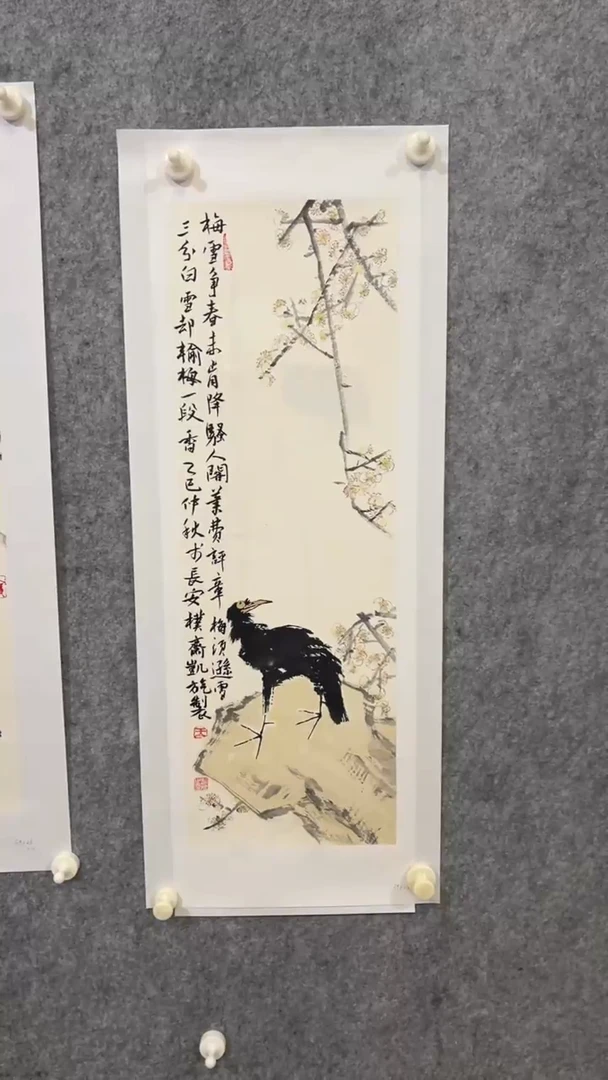 梅雪争春未肯降騷人閣筆費評章梅須遜雪
三分白雪却輸梅一段香乙巳仲秋於長安樸齋凱旋製